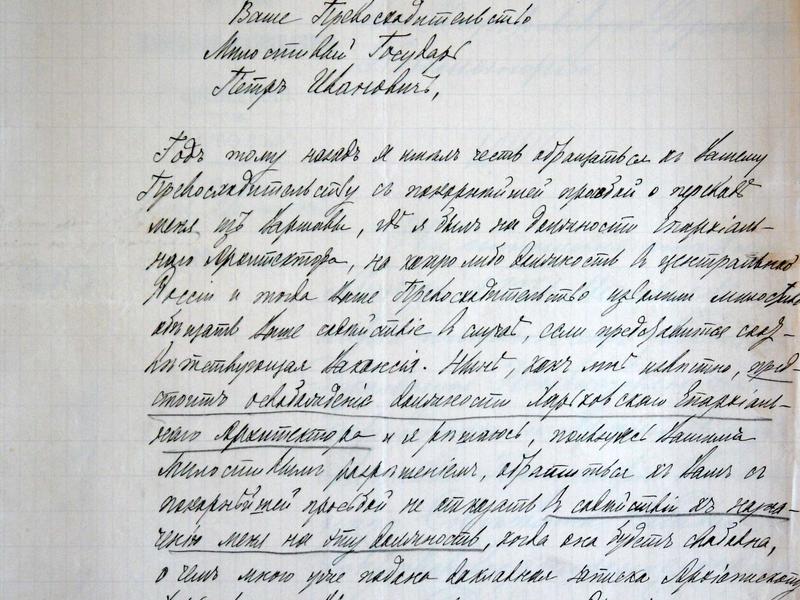 Ваше Превосходительство
Милостивый Государь
Петръ Ивановичъ,
Годъ тому назадъ я имѣлъ честь обращаться къ Вашему
Превосходительству съ покорнѣйшей просьбой о переводѣ
меня изъ Варшавы, гдѣ я былъ на должности Епархіаль-
наго Архитектора, на какую либо должность въ центральной
Россіи и тогда Ваше Превосходительство изволили милостиво
обѣщать Ваше содѣйствіе въ случаѣ, если представится соот-
вѣтствующая вакансія. Нынѣ, какъ мнѣ извѣстно, пред-
стоитъ освобожденіе должности Харьковскаго Епархіаль-
наго Архитектора и я рѣшаюсь, пользуясь Вашимъ
Милостивымъ разрѣшеніемъ, обратиться къ Вамъ съ
покорнѣйшей просьбой не отказать въ содѣйствіи къ назна-
ченію меня на эту должность, когда она будетъ свободна,
о чемъ мною уже подана докладная записка Архіепископу